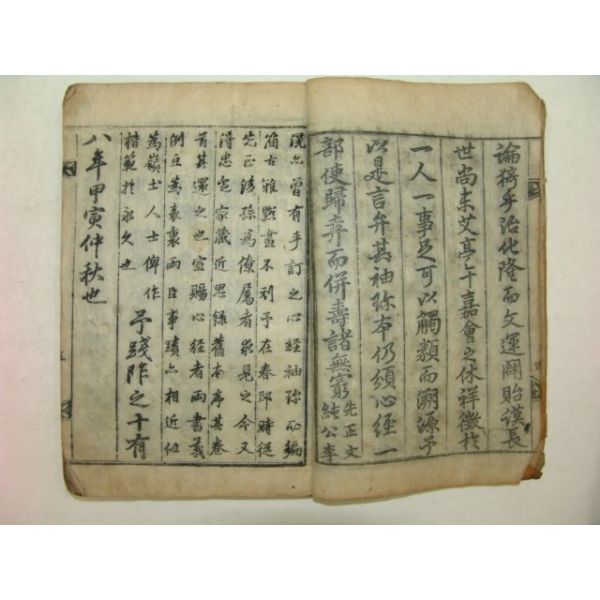 論猗乎治化隆而文運闢貽謨長
世尚艾亭嘉會之休祥徵於
一人一事足可以觸類而溯源予
以是言弁其袖珍本仍頒心經一
部使歸弆而併壽諸無窮先正文
純公李
滉亦曾有手訂之心經袖珍編
簡古雅點畫不刓予在春邸時從
先正後孫爲僚屬者取見之今又
得忠定家藏近思錄舊本序其卷
首其還之也宣賜心經者兩書義
例互爲表裏兩臣事蹟亦相近似
爲嶺士人士俾作
楷範於永久也 予踐阼之十有
八年甲寅仲秋也